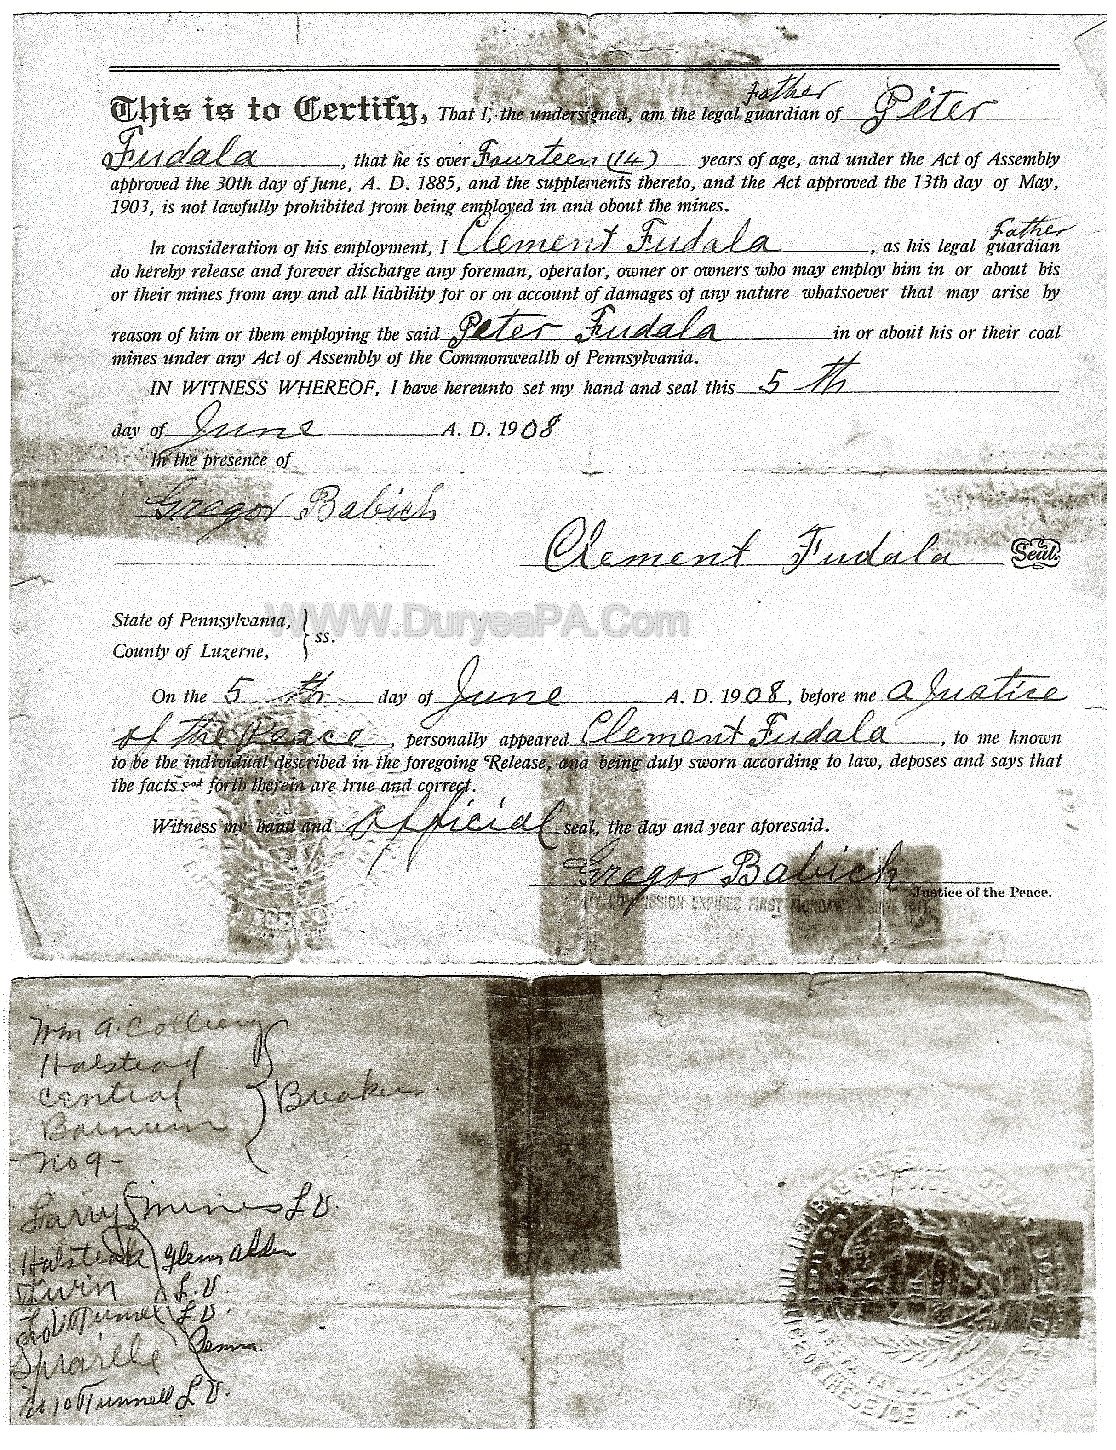 Father
This is to Certify, That I, the undersigned, am the legal guardian of Peter
Fudala, that he is over Fourteen (14) years of age, and under the Act of Assembly
approved the 30th day of June, A. D. 1885, and the supplements thereto, and the Act approved the 13th day of May,
1903, is not lawfully prohibited from being employed in and about the mines.
Father
In consideration of his employment, I Clement Fudala, as his legal guardian
do hereby release and forever discharge any foreman, operator, owner or owners who may employ him in or about his
or their mines from any and all liability for or on account of damages of any nature whatsoever that may arise by
reason of him or them employing the said Peter Fudala in or about his or their coal
mines under any Act of Assembly of the Commonwealth of Pennsylvania.
IN WITNESS WHEREOF, I have hereunto set my hand and seal this 5 th
day of June A. D. 1908
In the presence of
Gregor Babich
Clement Fudala Seal.
WWW.DuryeaPA.Com
State of Pennsylvania,
ss.
County of Luzerne,
On the 5 th day of June A. D. 1908, before me a Justice
of the Peace, personally appeared Clement Fudala, to me known
to be the individual described in the foregoing Release, and being duly sworn according to law, deposes and says that
the facts set forth therein are true and correct.
Witness my hand and official seal, the day and year aforesaid.
Gregor Babich
Justice of the Peace.
COMMISSION EXPIRES FIRST MONDAY
Wm A. Colliery
Halstead
Central Breaker
Barnum
No 9 -
Mines L.V.
Halstead Glenn Alden
Twin L.V.
Tunnel L.V.
No 10 Tunnell L.V.